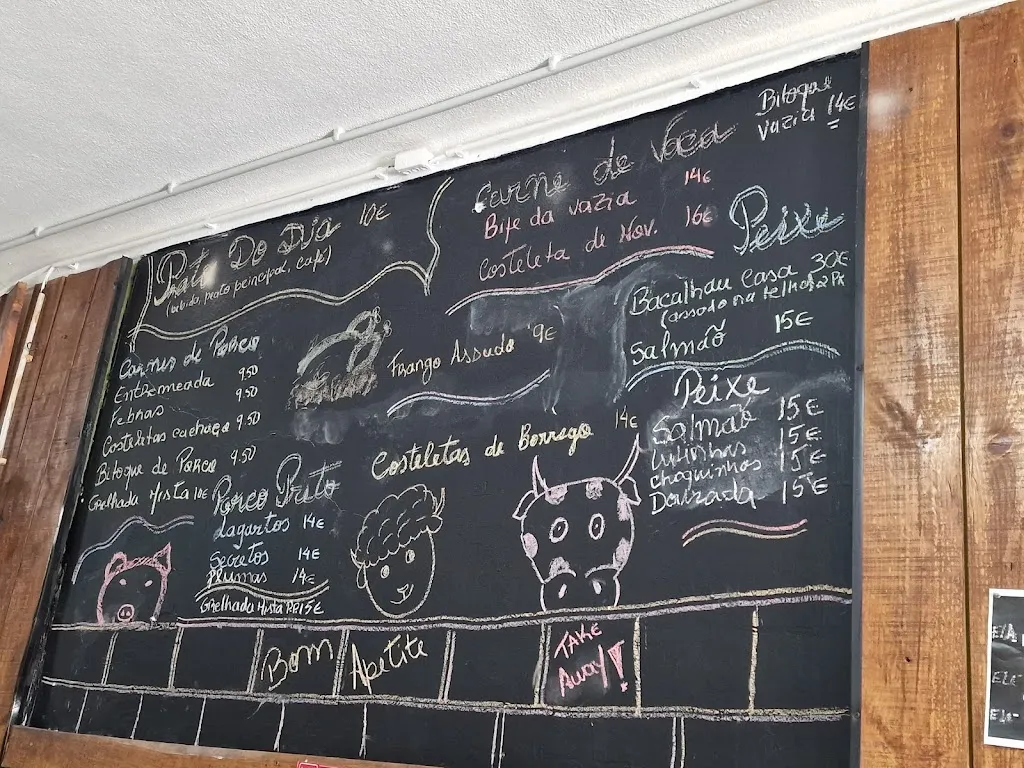 Prato Do Dia 10€
(bebida, prato principal, café)
Carnes de Porco
Entremeada 9.50
Febras 9.50
Costeletas cachaço 9.50
Bitoque de Porco 9.50
Grelhada Mista 10€
Porco Preto
Lagartos 14€
Secretos 14€
Plumas 14€
Grelhada Mista PR 15€
Frango Assado 9€
Costeletas de Borrego 14€
Carne de Vaca
Bife da vazia 14€
Costeleta de Nov. 16€
Bitoque
Vazia 14€
Peixe
Bacalhau Casa 30€
(assado na telha) 2 Px
Salmão 15€
Peixe
Salmão 15€
Lulinhas 15€
Choquinhos 15€
Dourada 15€
Bom Apetite
TAKE
Away!